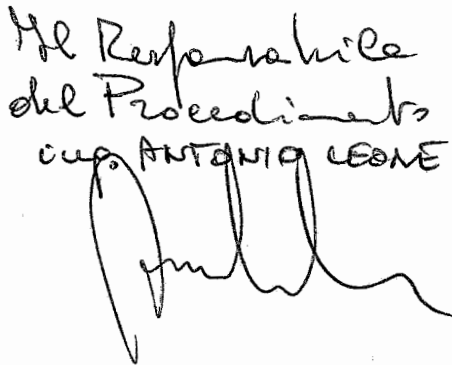 Il Responsabile
del Procedimento
ing. ANTONIO LEONE